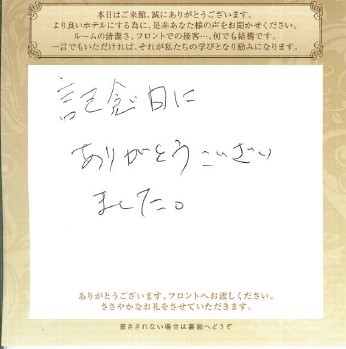 本日はご来館、誠にありがとうございます。
より良いホテルにする為に、是非あなた様の声をお聞かせください。
ルームの清潔さ、フロントでの接客…、何でも結構です。
一言でもいただければ、それが私たちの学びとなり励みになります。
記念日に
ありがとうございい
ました。
ありがとうございます。フロントへお渡しください。
ささやかなお礼をさせていただきます。
書ききれない場合は裏面へどうぞ